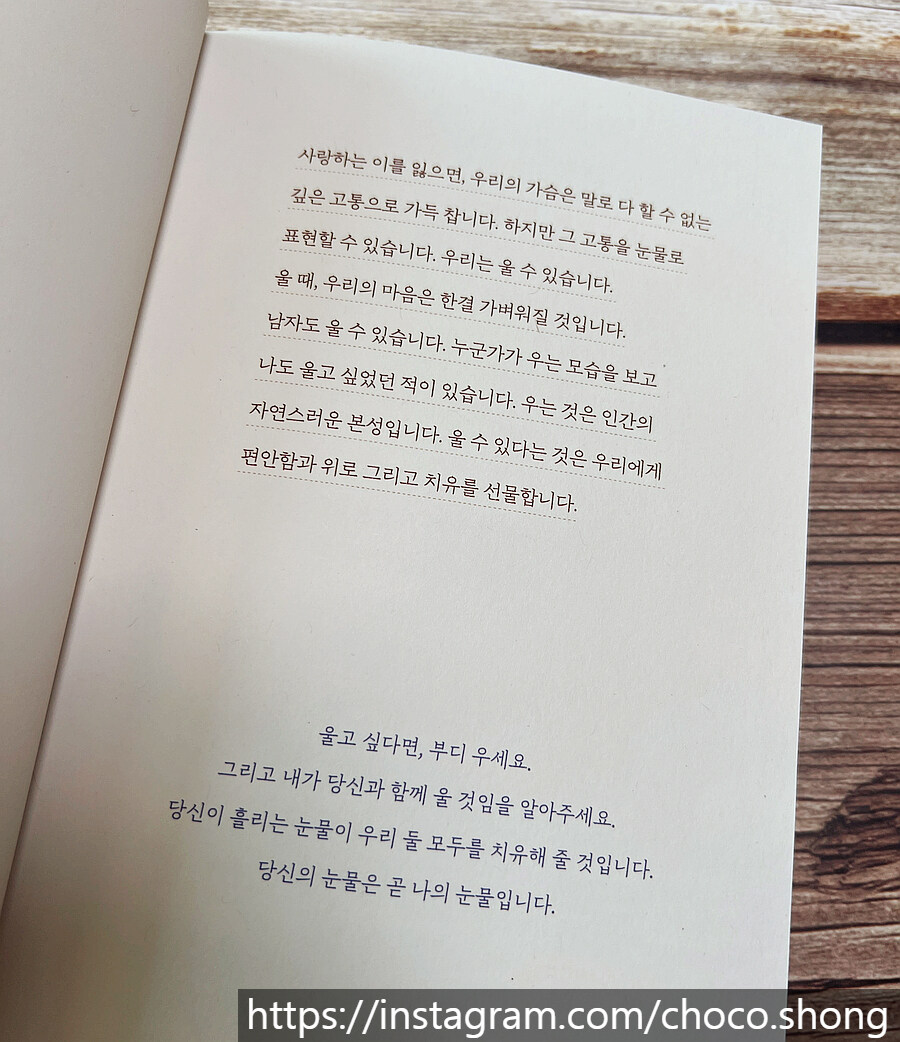 사랑하는 이를 잃으면, 우리의 가슴은 말로 다 할 수 없는
깊은 고통으로 가득 찹니다. 하지만 그 고통을 눈물로
표현할 수 있습니다. 우리는 울 수 있습니다.
울 때, 우리의 마음은 한결 가벼워질 것입니다.
남자도 울 수 있습니다. 누군가가 우는 모습을 보고
나도 울고 싶었던 적이 있습니다. 우는 것은 인간의
자연스러운 본성입니다. 울 수 있다는 것은 우리에게
편안함과 위로 그리고 치유를 선물합니다.
울고 싶다면, 부디 우세요.
그리고 내가 당신과 함께 울 것임을 알아주세요.
당신이 흘리는 눈물이 우리 둘 모두를 치유해 줄 것입니다.
당신의 눈물은 곧 나의 눈물입니다.
https://instagram.com/choco.shong